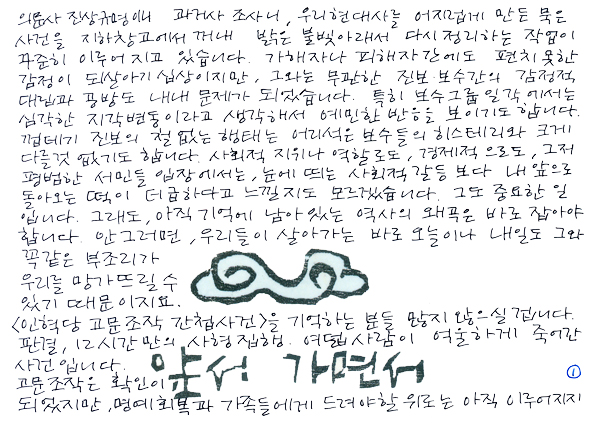 의문사 진상규명이니 과거사 조사니, 우리현대사를 어지럽게 만든 묵은
사건을 지하창고에서 꺼내 밝은 불빛아래서 다시 정리하는 작업이
꾸준히 이루어지고 있습니다. 가해자나 피해자간에도 편치 못한
감정이 되살아기 십상이지만, 그와는 무관한 진보·보수간의 감정적
대립과 공방도 내내 문제가 되었습니다. 특히 보수그룹일각에서는
심각한 지각변동이라고 생각해서 예민한 반응을 보이기도 합니다.
껍데기 진보의 철없는 행태는 어리석은 보수들의 히스테리와 크게
다를것 없기도 합니다. 사회적 지위나 역할로도, 경제적으로도, 그저
평범한 서민들 입장에서는, 눈에 띄는 사회적갈등 보다 내 앞으로
돌아오는 떡이 더 급하다고 느낄지도 모르겠습니다. 그도 중요한 일
입니다. 그래도, 아직 기억에 남아있는 역사의 왜곡은 바로 잡아야
합니다. 안 그러면, 우리들이 살아가는 바로 오늘이나 내일도 그와
꼭같은 부조리가
우리를 망가뜨릴 수
있기 때문이지요.
<인혁당 고문조작 간첩사건>을 기억하는 분들 많지 않으실겁니다.
판결, 12시간 만의 사형집행. 여덟사람이 억울하게 죽어간
사건입니다.
앞서 가면서
고문조작은 확인이
되었지만, 명예회복과 가족들에게 드려야할 위로는 아직 이루어지지
①